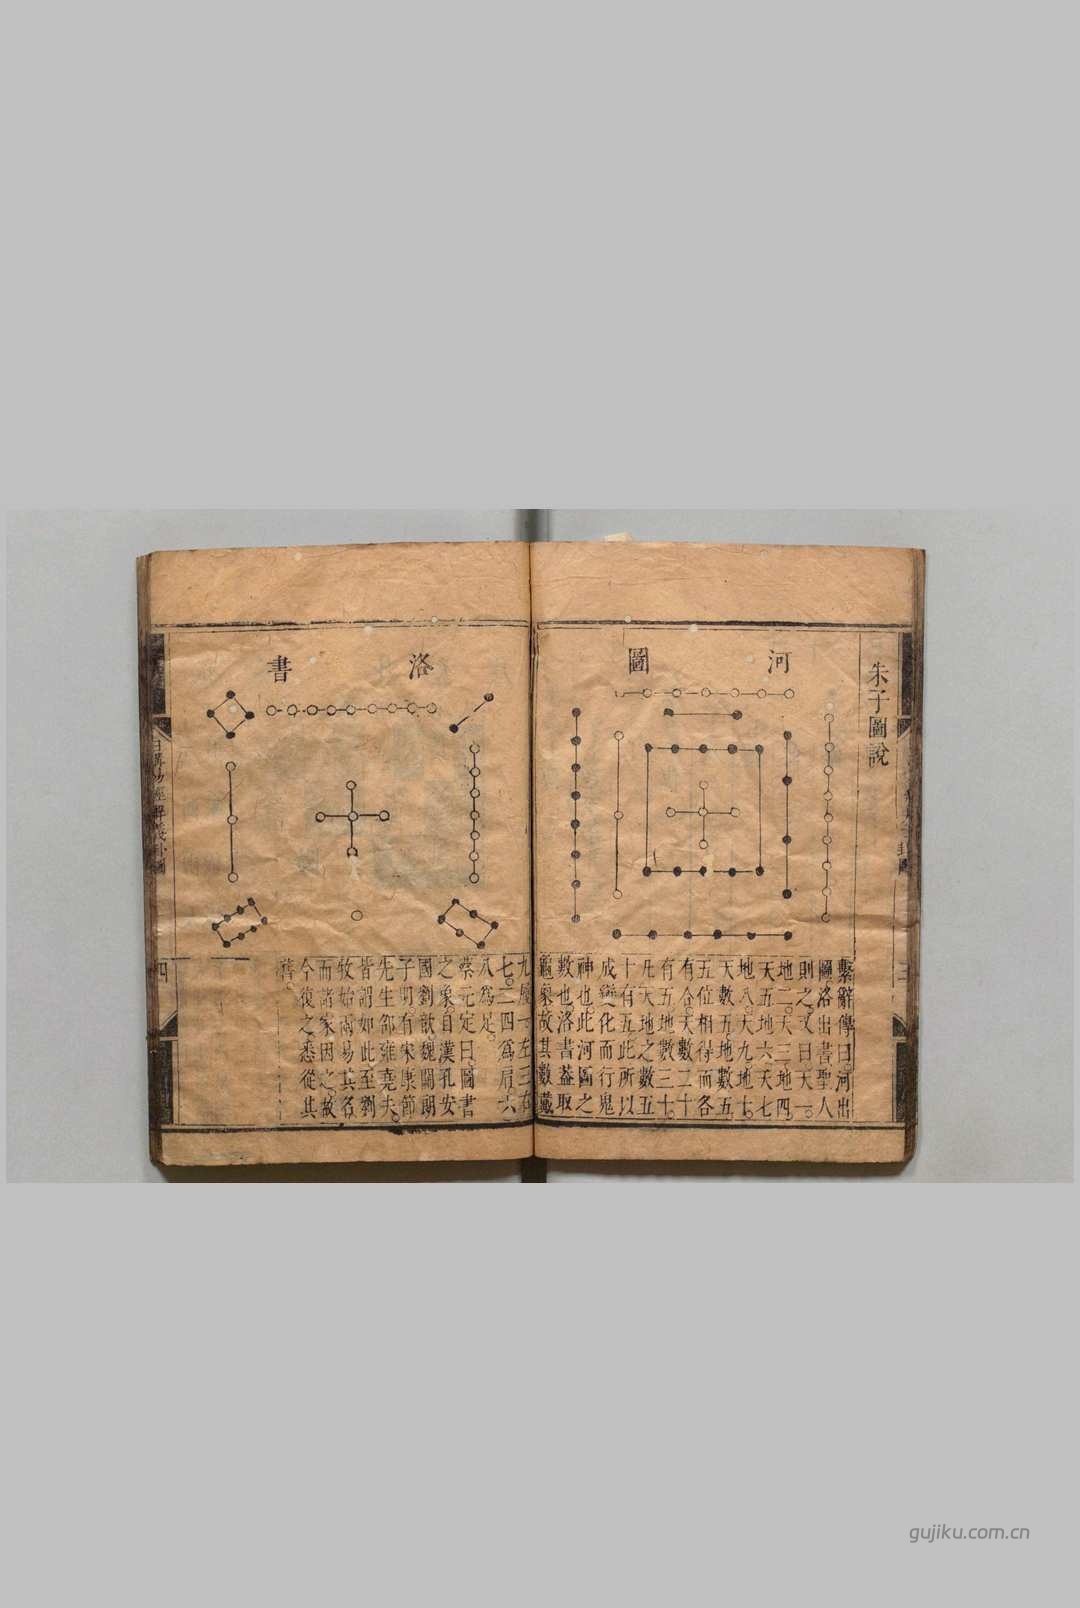 朱子圖說
河圖
繫辭傳曰河出
圖洛出書聖人
則之又曰天一
地二天三地四
天五地六天七
地八天九地十
天數五地數五
五位相得而各
有合天數二十
有五地數三十
凡天地之數五
十有五此所以
成變化而行鬼
神也此河圖之
數也洛書蓋取
龜象故其數戴
洛書
九履一左三右
七二四為肩六
八為足
蔡元定曰圖書
之象自漢孔安
國劉歆魏關朗
子明有宋康節
先生邵雍堯夫
皆謂如此至劉
牧始兩易其名
而諸家因之故
今復之悉從其
舊
日講易經解義卦圖
四
gujiku.com.cn